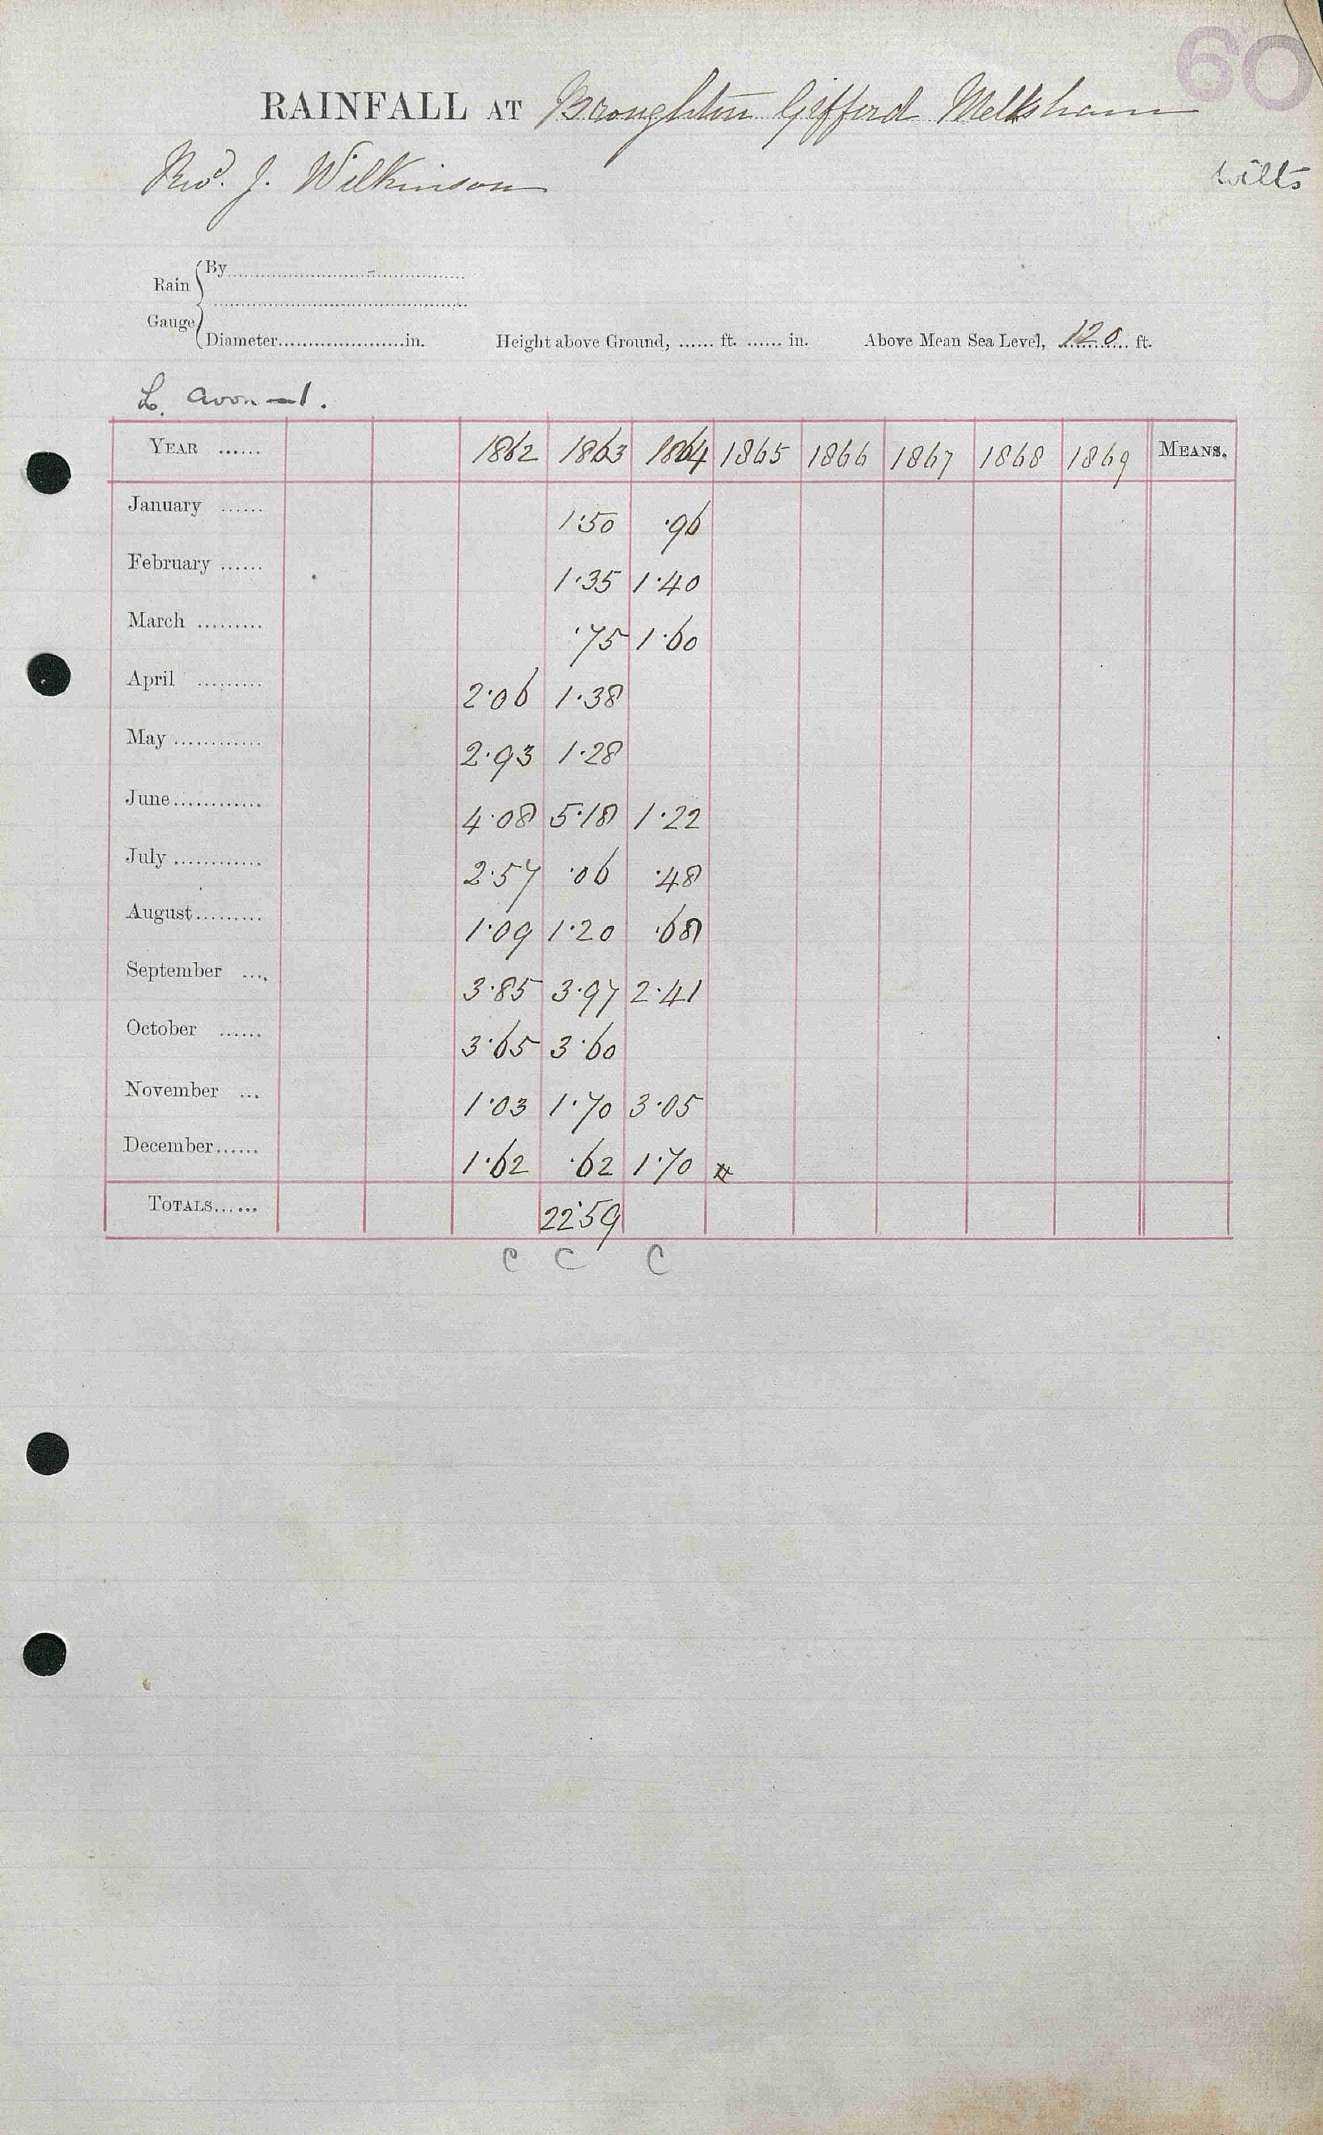 60
RAINFALL AT Broughton Gifford Melksham
Revd. J. Wilkinson
Wilts
Rain Gauge
By
Diameter in.
Height above Ground, ...... ft. ...... in.
Above Mean Sea Level, 120 ft.
L. Avon – 1.
YEAR ...... 1862 1863 1864 1865 1866 1867 1868 1869 MEANS.
January ...... 1.50 .96
February ...... 1.35 1.40
March ......... .75 1.60
April ......... 2.06 1.38
May ............ 2.93 1.28
June ............ 4.08 5.18 1.22
July ............ 2.57 .06 .48
August ......... 1.09 1.20 .68
September .... 3.85 3.97 2.41
October ...... 3.65 3.60
November ... 1.03 1.70 3.05
December ...... 1.62 .62 1.70
TOTALS ...... 22.59
C C C